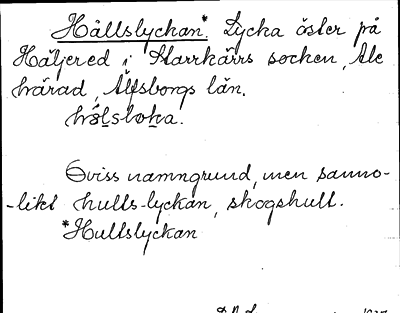 Hållslyckan*. Lycka öster på
Häljered i Starrkärrs socken, Ale
härad, Älfsborgs län.
hålsloka.
Oviss namngrund, men sanno-
-likt hulls-lyckan, skogshull.
*Hullslyckan